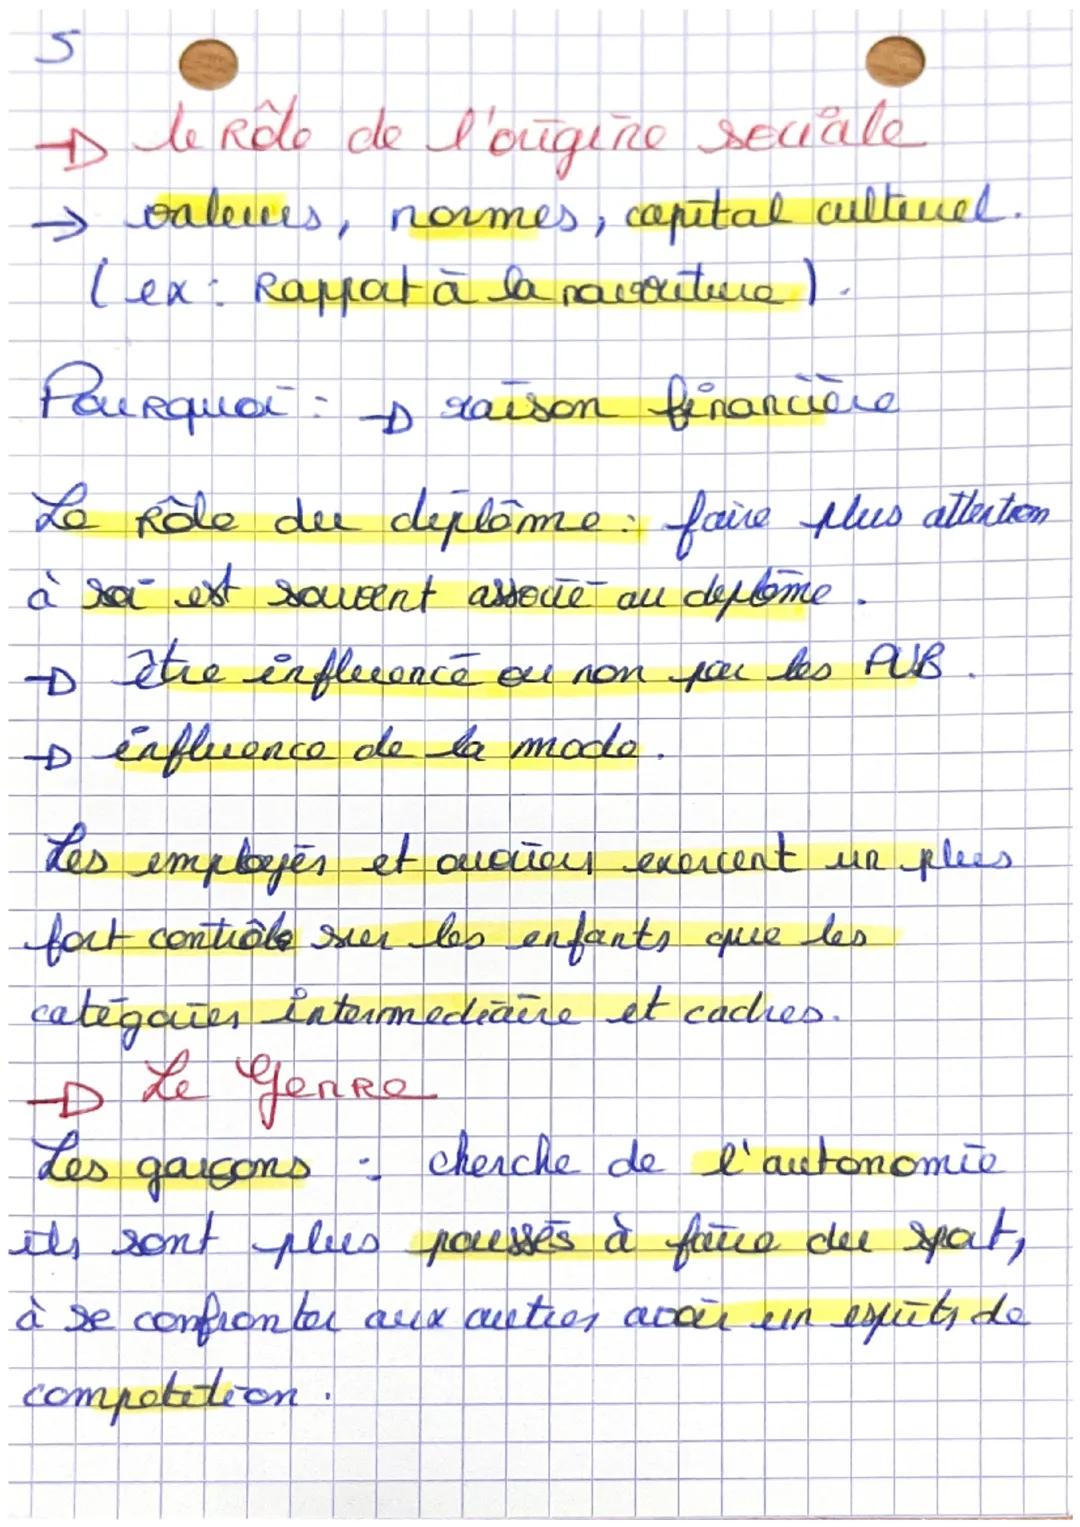 5
→ le Rôle de l'origine sociale
→ valeurs, normes, capital culturel.
(ex : Rapport à la nourriture).
Pourquoi : → raison financière
Le rôle du diplôme : faire plus attention
à soi est souvent associé au deplôme.
→ être influencé ou non par les PUB.
→ influence de la mode.
Les employés et ouvriers exercent un plus
fort contrôle sur les enfants que les
catégories intermediaire et cadres.
→ Le Genre
Les garçons : cherche de l'autonomie
ils sont plus poussés à faire du sport,
à se confronter aux autres avoir un esprits de
competetion.